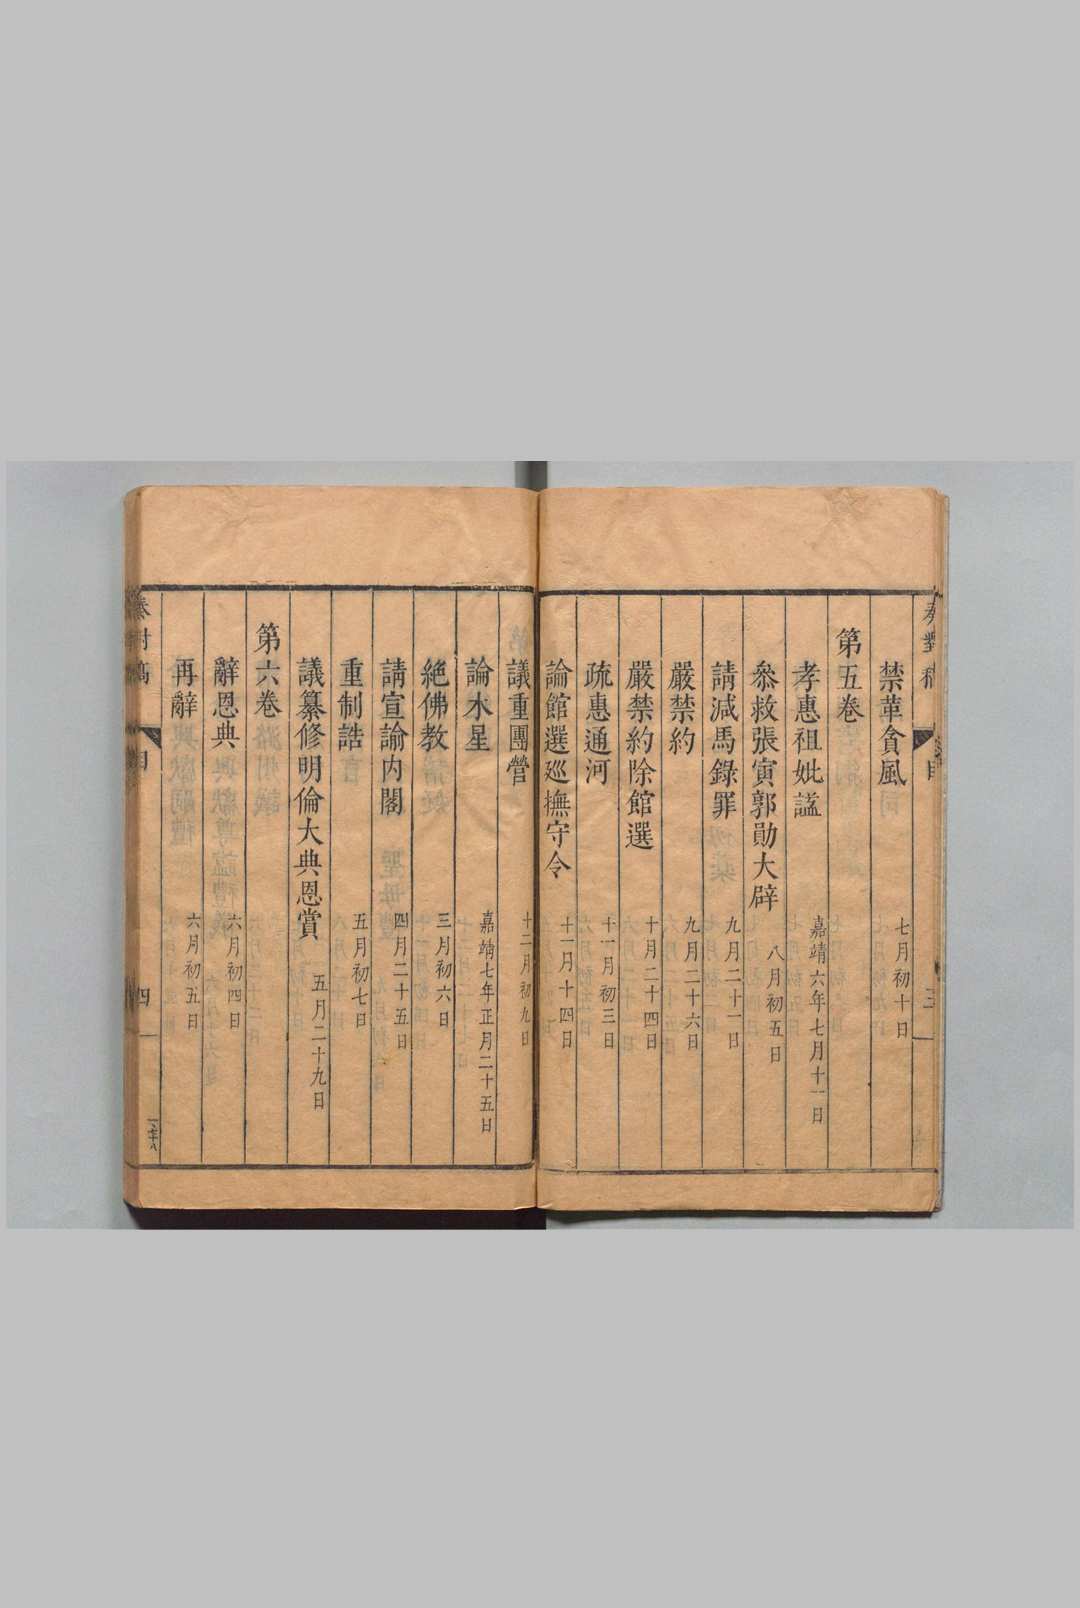 奏對稿 目 三
禁革貪風 七月初十日
第五巻
孝惠祖妣謚 嘉靖六年七月十一日
叅救張寅郭勛大辟 八月初五日
請減馬錄罪 九月二十一日
嚴禁約 九月二十六日
嚴禁約除館選 十月二十四日
疏惠通河 十一月初三日
論館選廵撫守令 十一月十四日
議重團營 十二月初九日
論水星 嘉靖七年正月二十五日
絕佛教 三月初六日
請宣諭内閣 四月二十五日
重制誥 五月初七日
議纂修明倫大典恩賞 五月二十九日
第六巻
辭恩典 六月初四日
再辭 六月初五日
奏對稿 目 四